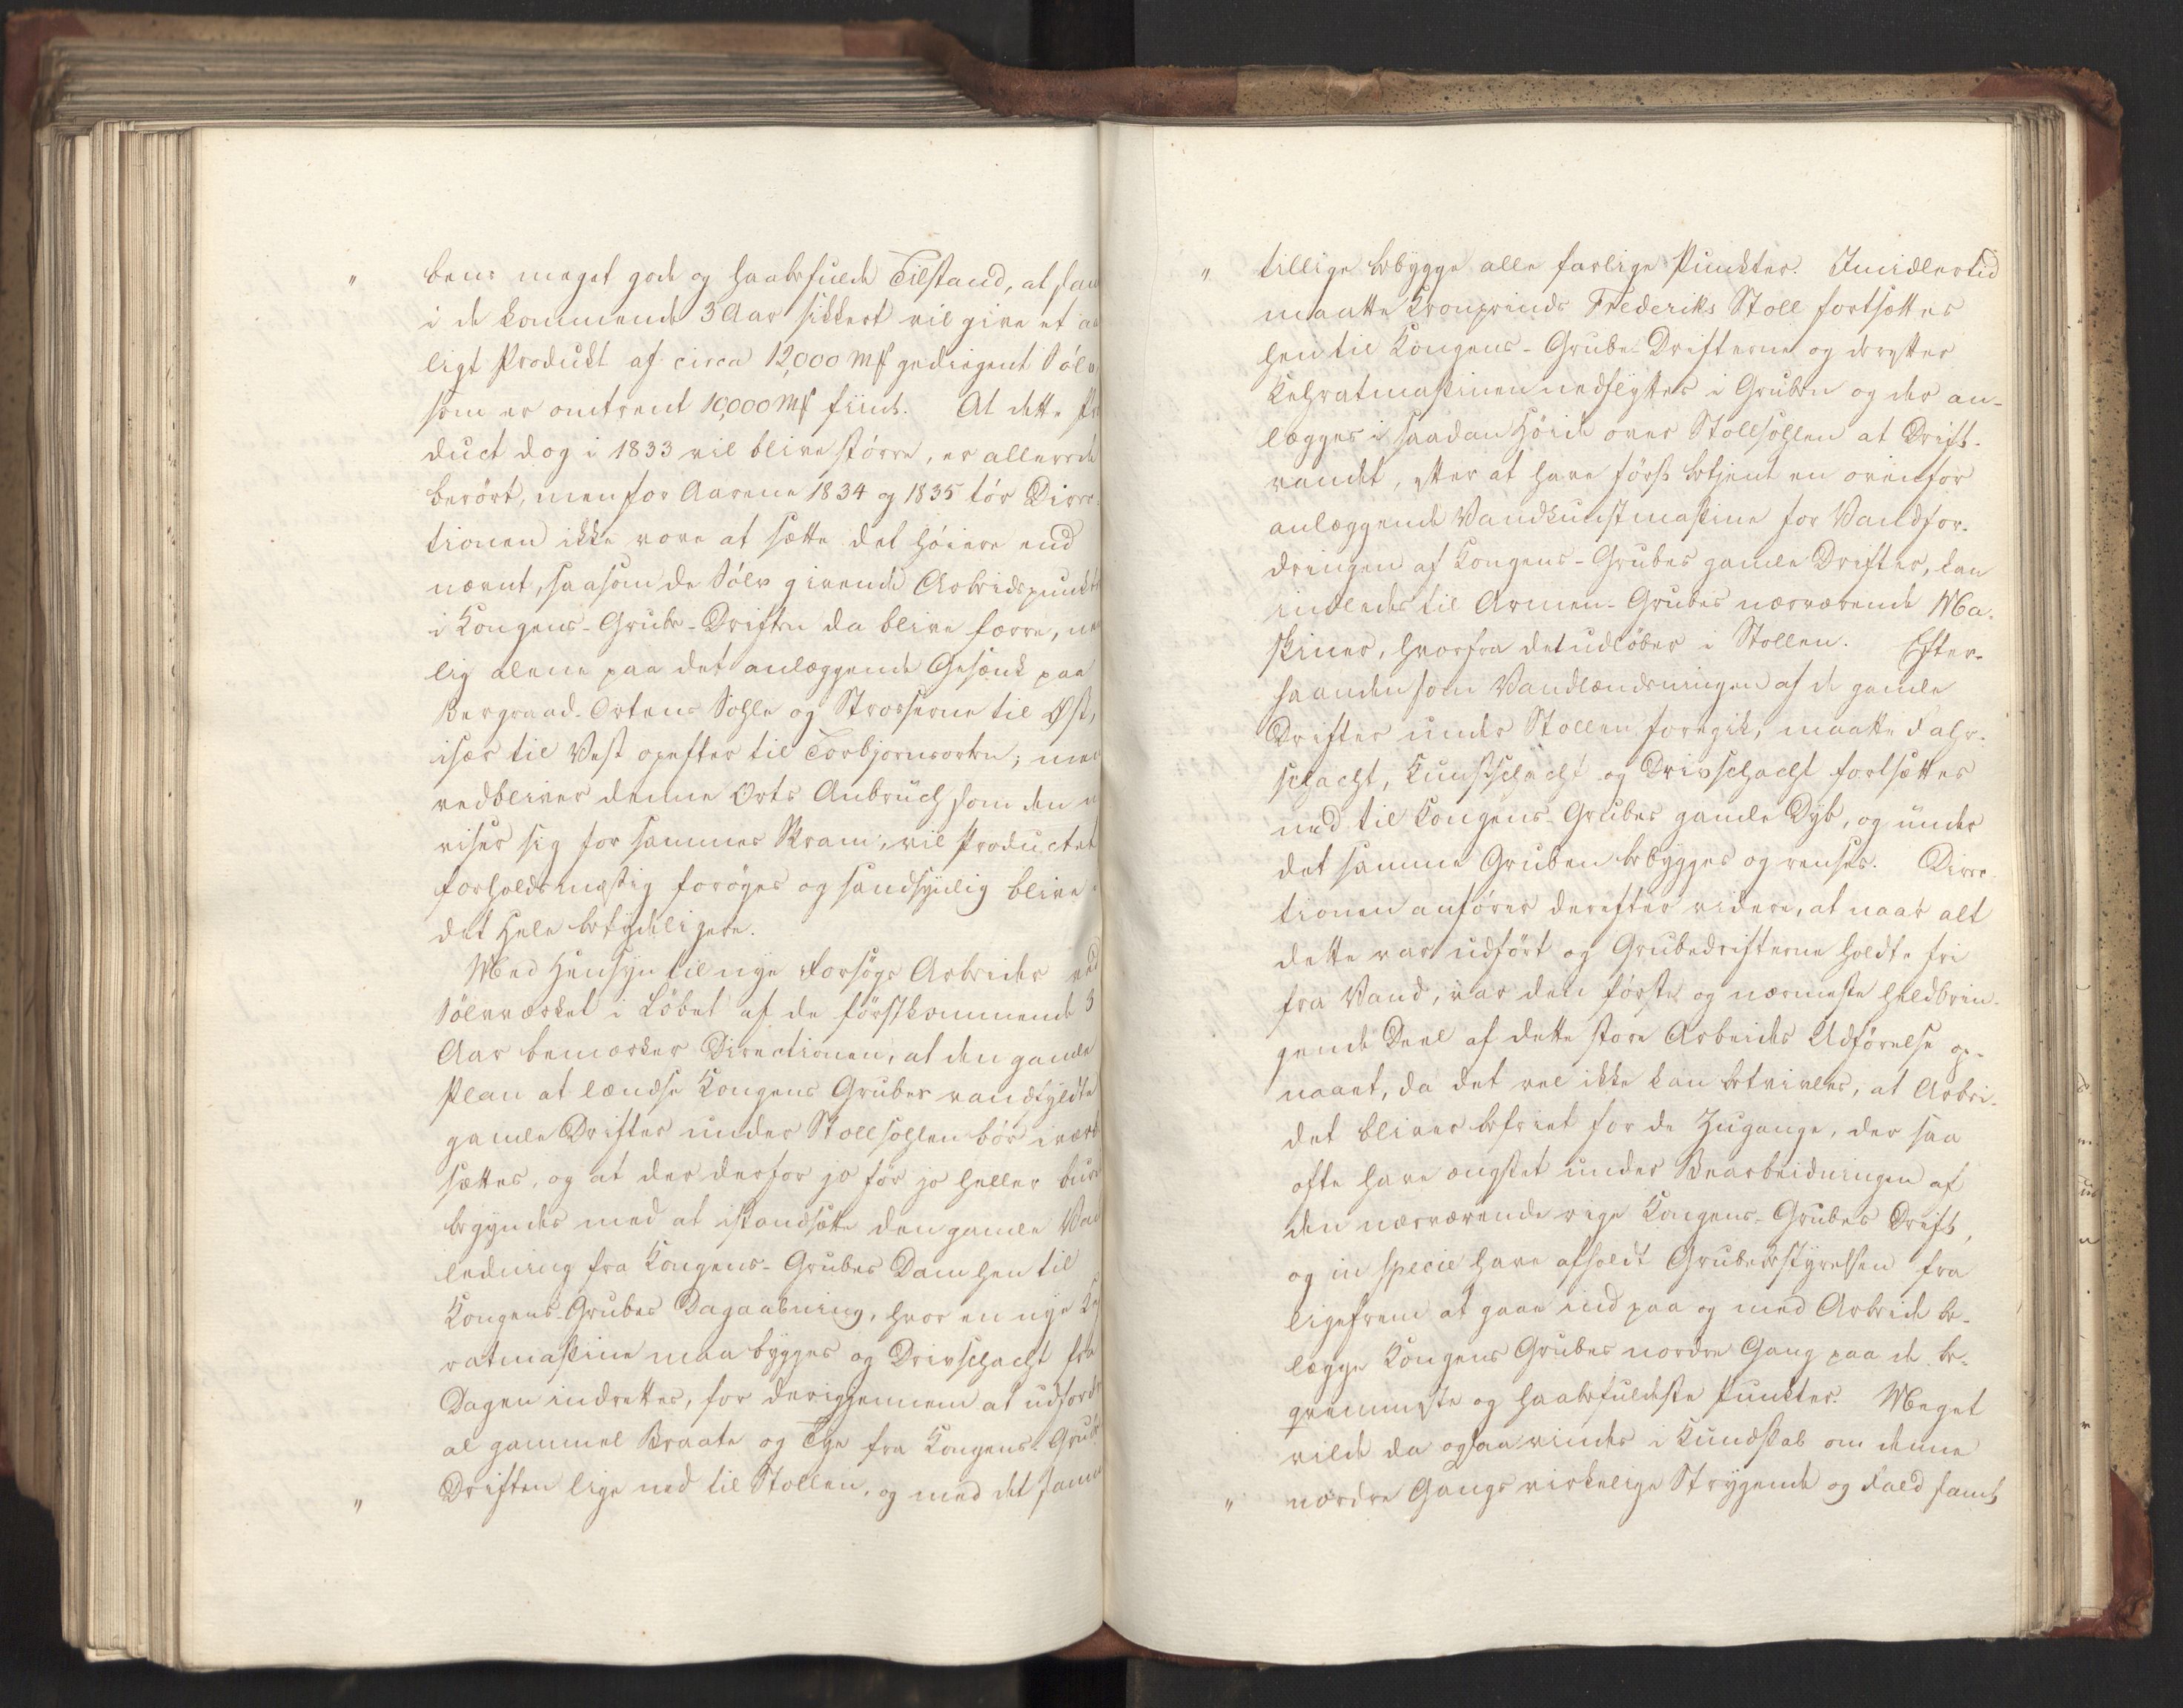 " bens meget gode og haabefulde Tilstand, at saa
i de kommende 3 Aar sikkert vil give et aa
ligt Produkt af circa 12,000 Mk gediegent Sölv
som er omtrent 10,000 Mk fiint. At dette Pro
duct dog i 1833 vil blive större, er allerede
berört, men for Aarene 1834 og 1835 tör Direc
tionen ikke vove at sætte det höiere end
nævnt, saasom de Sölv givende Arbeidspunkte
i Kongens-Grube-Driften da blive færre, ne
lig alene paa det anlæggende Gesænk paa
Bergraad-Ortens Sohle og Strosserne til Øst,
især til Vest opefter til Torbjornsorten; men
vedbliver denne Orts Anbrüch som den n
viser sig for sammes Skram, vil Productet
forholdsmæssig foröges og sandsynlig blive i
det Hele betydeligere.
Med Hensyn til nye Forsögs Arbeider ved
Sölvværket i Löbet af de förstkommende 3
Aar bemærker Directionen, at den gamle
Plan at lændse Kongens Grubes vandfyldte
gamle Drifter under Stollsohlen bör iværk
sættes, og at der derfor jo för jo heller bur
begyndes med at istandsætte den gamle Van
ledning fra Kongens-Grubes Dam hen til
Kongens-Grubes Dagaabning, hvor en nye Keh
ratmaskine maa bygges og Drivschacht fra
Dagen indrettes, for derigjennem at udfordre
al gammel Braate og Tye fra Kongens-Grube
" Driften lige ned til Stollen, og med det samme
" tillige bebygge alle farlige Punkter. Imidlertid
maatte Kronprinds Frederiks Stoll fortsættes
hen til Kongens-Grube-Drifterne og derefter
Kehratmaskinen nedflyttes i Gruben og der an-
lægges i saadan Höide over Stollsohlen at Drift-
vandet, efter at have först betjent en ovenfor
anlæggende Vandkunstmaskine for Vandfor-
dringen af Kongens-Grubes gamle Drifter, kan
indledes til Armen-Grubes nærværende Ma-
skiner, hvorfra det udlöber i Stollen. Efter-
haanden som Vandlændsningen af de gamle
Drifter under Stollen foregik, maatte Fahr-
schacht, Kunstschacht og Drivschacht fortsættes
ned til Kongens-Grubes gamle Dyb, og under
det samme Gruben bebygges og renses. Direc-
tionen anförer derefter videre, at naar alt
dette var udfört og Grubedrifterne holdte fri
fra Vand, var den förste og nærmeste heldbrin-
gende Deel af dette store Arbeides Udförelse op-
naaet, da det vel ikke kan betvivles, at Arbei-
det bliver befriet for de Zugange, der saa
ofte have ængstet under Bearbeidningen af
den nærværende rige Kongens-Grubes Drift,
og in specie have afholdt Grubebestyrelsen fra
ligefrem at gaae ind paa og med Arbeide be-
lægge Kongens Grubes nordre Gang paa de be-
qvemmeste og haabefuldeste Punkter. Meget
vilde da ogsaa vindes i Kundskab om denne
" nordre Gangs virkelige Strygende og Fald samt